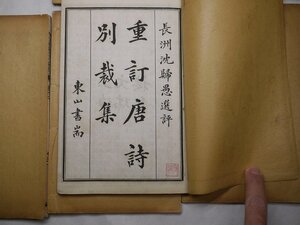 長洲沈歸愚選評
重訂唐詩
別裁集
東山書